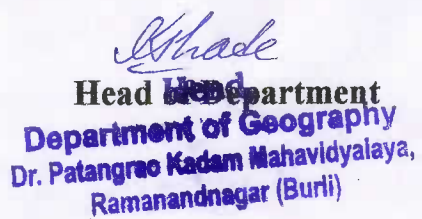 Head of Department
Head
Department of Geography
Dr. Patangrao Kadam Mahavidyalaya,
Ramanandnagar (Burli)